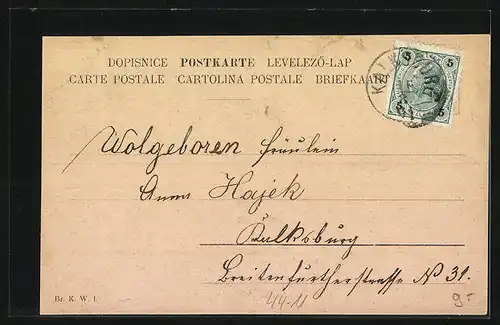 DOPISNICE POSTKARTE LEVELEZŐ-LAP
CARTE POSTALE CARTOLINA POSTALE BRIEFKAART
5 5
5 5
Wolgeboren Fräulein
Anna Hajek
Kalksburg
Breitenfurtherstrasse N 31.
Br. K. W. I.
44-11
9.-